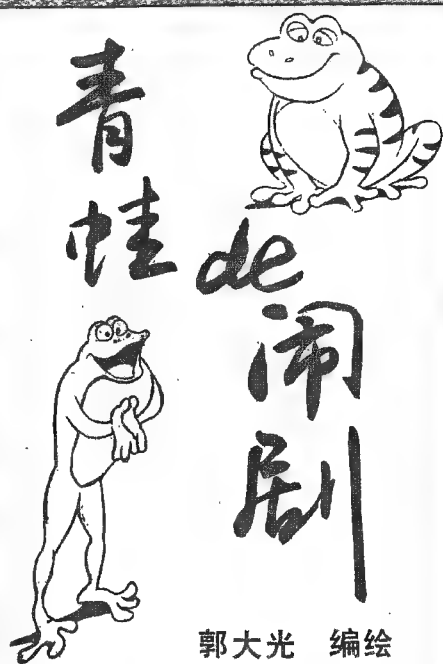 青蛙
de
闹剧
郭大光 编绘